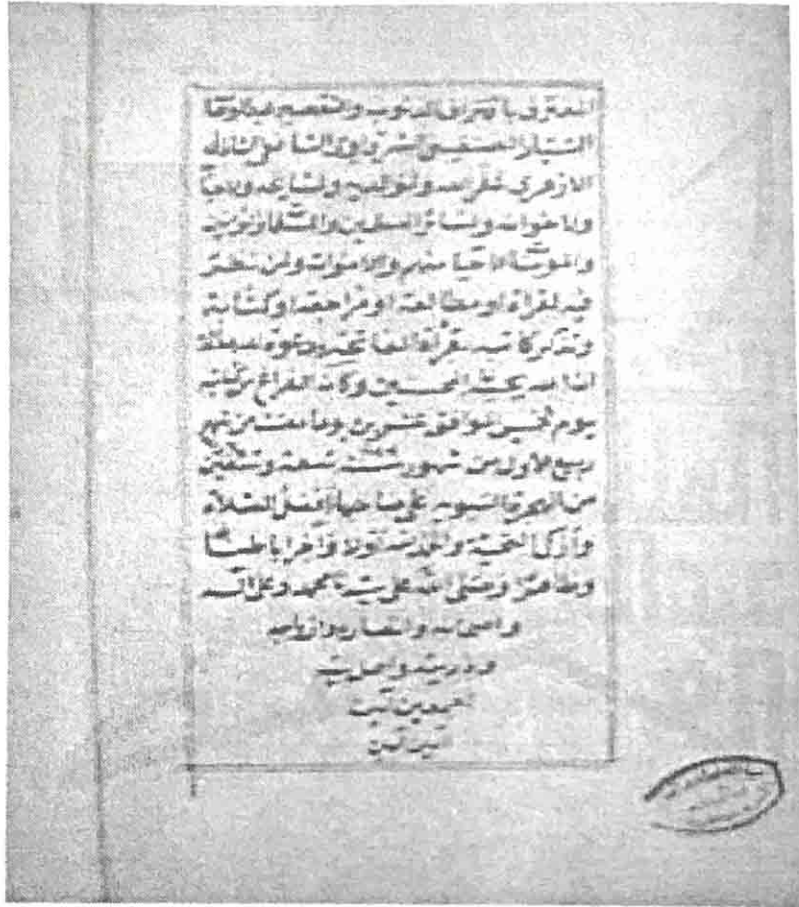 المعترف باقتراف الذنوب والتقصير عبد الوهاب
الشافعي الشاذلي
الازهري غفر الله له ولوالديه ولمشايخه
ولاخوانه ولسائر المسلمين والمسلمات
الاحيا منهم والاموات ولمن نظر
فيه لقراءة او مطالعة او مراجعة او كتابة
وتذكر كاتبه بقراة الفاتحة
المحسنين وكان الفراغ من
يوم الخميس الموافق عشرين يوما مضت من شهر
ربيع الاول من شهور سنة تسعة
من الهجرة النبوية على صاحبها افضل الصلاة
وأزكا التحية والحمد لله اولا وآخرا باطنا
وظاهرا وصلى الله على سيدنا محمد وعلى آله
واصحابه وانصاره وازواجه
وذريته واهل بيته
اجمعين